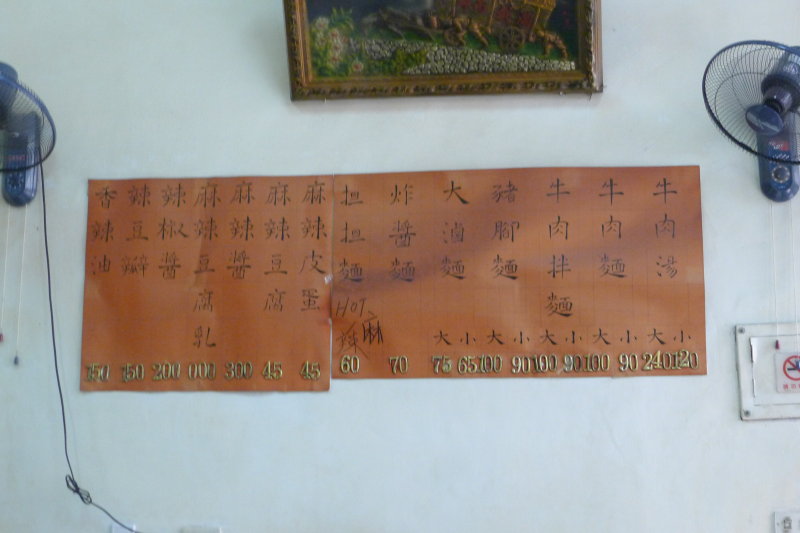 牛肉湯 大 小 240 120
牛肉麵 大 小 100 90
牛肉拌麵 大 小 100 90
豬腳麵 大 小 100 90
大滷麵 大 小 75 65
炸醬麵 70
担担麵 HOT 麻辣 60
麻辣皮蛋 45
麻辣豆腐 45
麻辣醬 300
麻辣豆腐乳 000
辣椒醬 200
辣豆瓣 150
香辣油 150